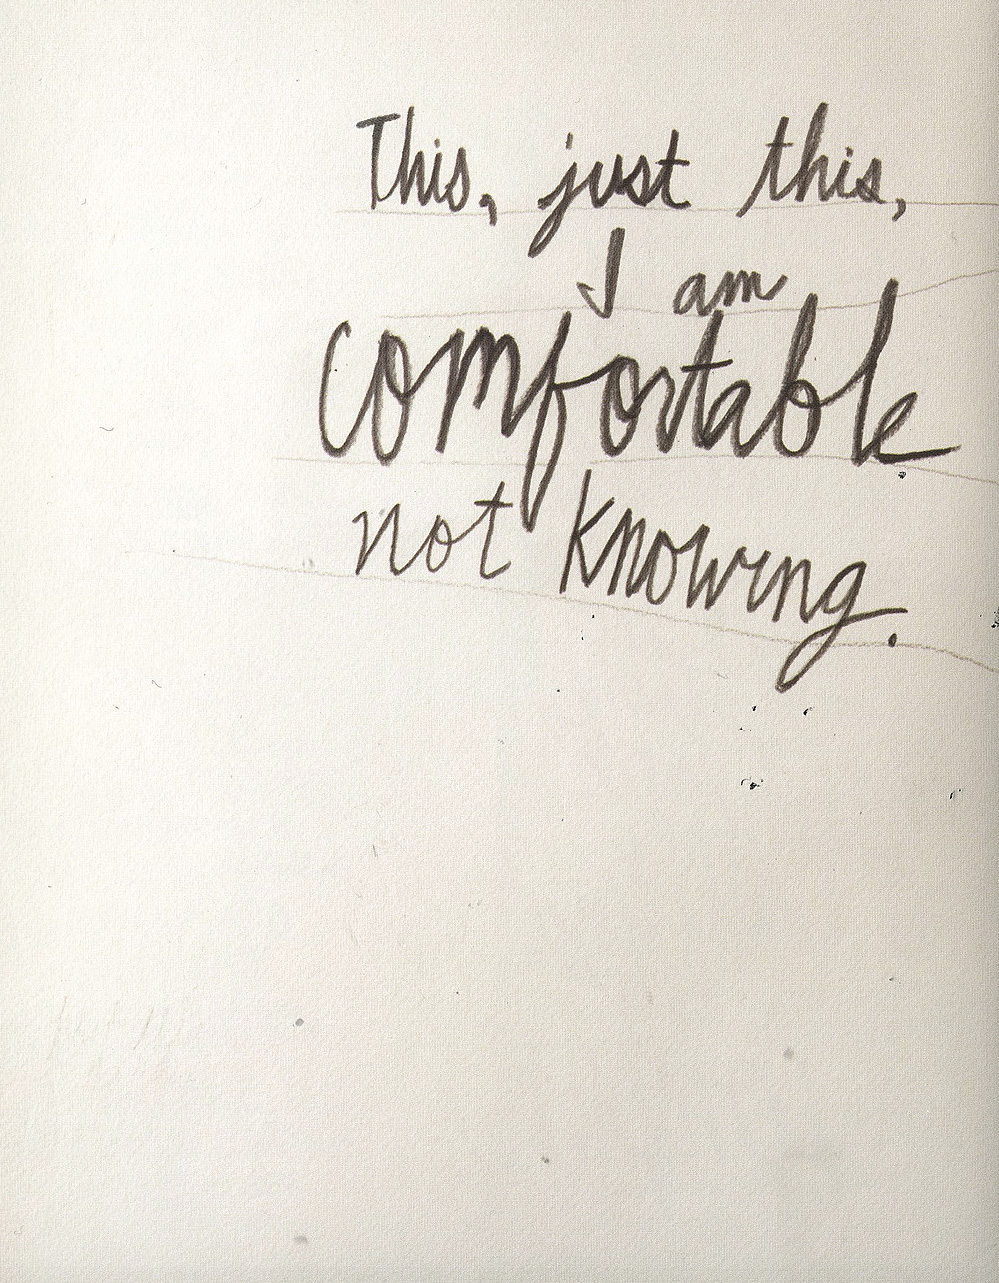 This, just this,
I am
comfortable
not knowing.